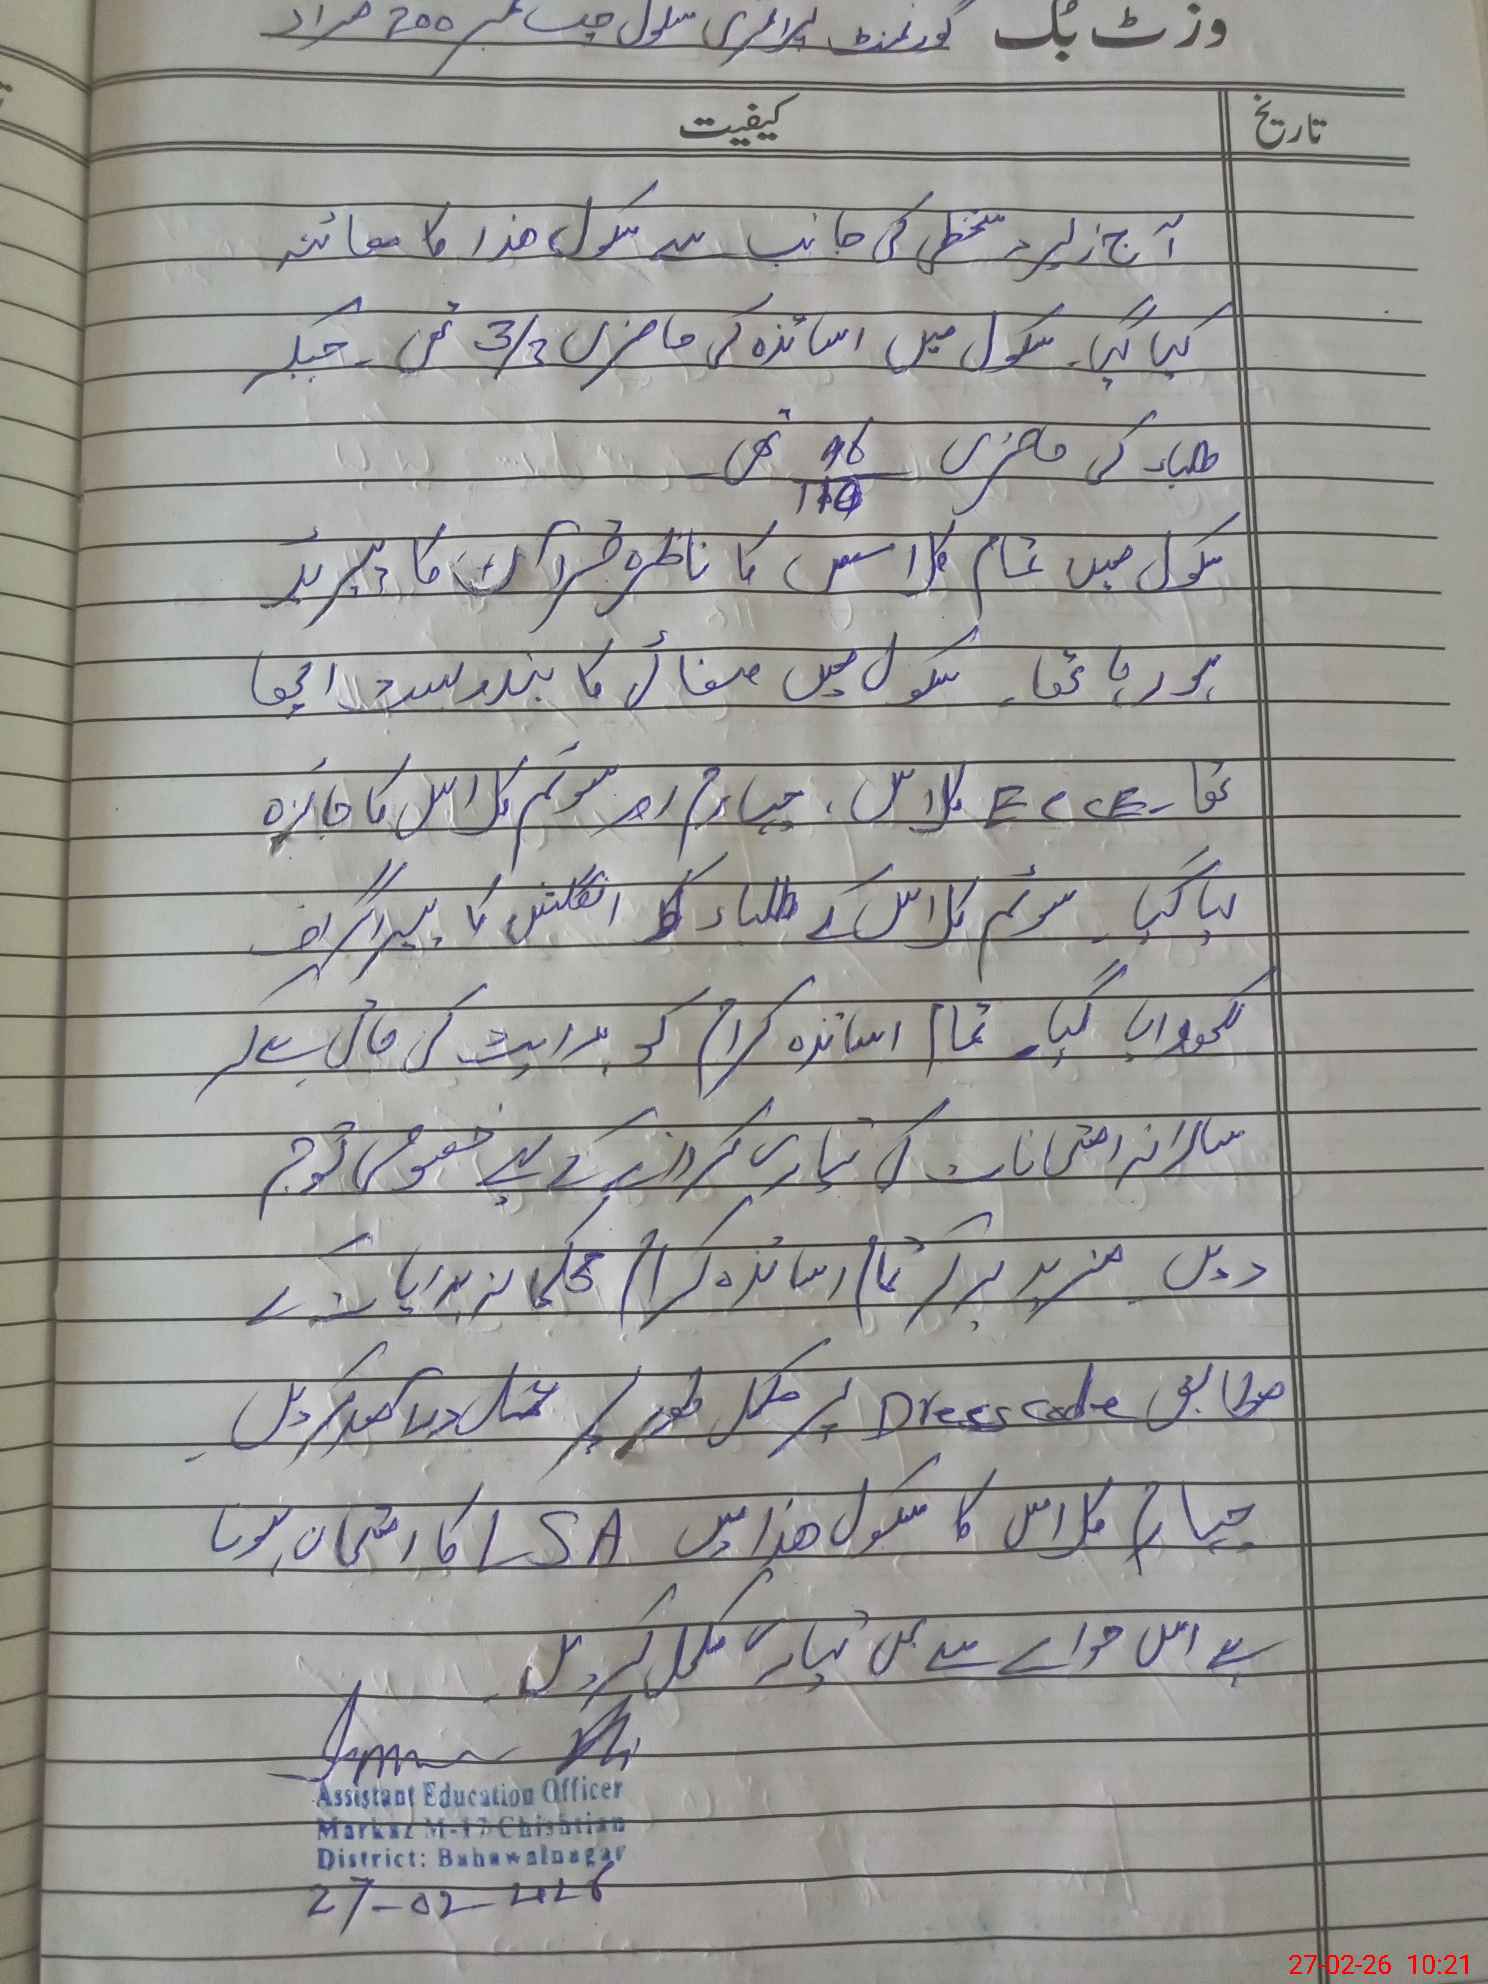 وزٹ بک گورنمنٹ پرائمری سکول چک نمبر 200 مراد
تاریخ کیفیت
آج زیر دستخطی کی جانب سے سکول ھذا کا معائنہ
کیا گیا۔ سکول میں اساتذہ کی حاضری 3/3 تھی۔ جبکہ
طلباء کی حاضری 96/110 تھی۔
سکول میں تمام کلاسس کا ناظرہ قرآن کا پیریڈ
ہو رہا تھا۔ سکول میں صفائی کا بندوبست اچھا
تھا۔ ECCE کلاس، چہارم اور سوئم کلاس کا جائزہ
لیا گیا۔ سوئم کلاس کے طلباء کو انگلش کا پیراگراف
لکھوایا گیا۔ تمام اساتذہ کرام کو ہدایت کی جاتی ہے کہ
سالانہ امتحانات کی تیاری کروانے کے لیے خصوصی توجہ
دیں۔ مزید یہ کہ تمام اساتذہ کرام محکمانہ ہدایات کے
مطابق Dress code پر مکمل طور پر عمل درآمد کریں۔
چہارم کلاس کا سکول ھذا میں LSA کا امتحان ہونا
ہے اس حوالے سے بھی تیاری مکمل کریں۔
Assistant Education Officer
Markaz M-17 Chishtian
District: Bahawalnagar
27-02-2026
27-02-26 10:21